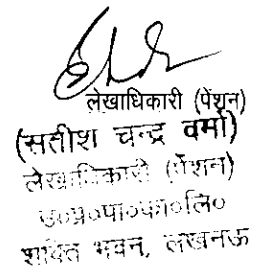 लेखाधिकारी (पेंशन)
(सतीश चन्द्र वर्मा)
लेखाधिकारी (पेंशन)
उ०प्र०पा०का०लि०
शक्ति भवन, लखनऊ